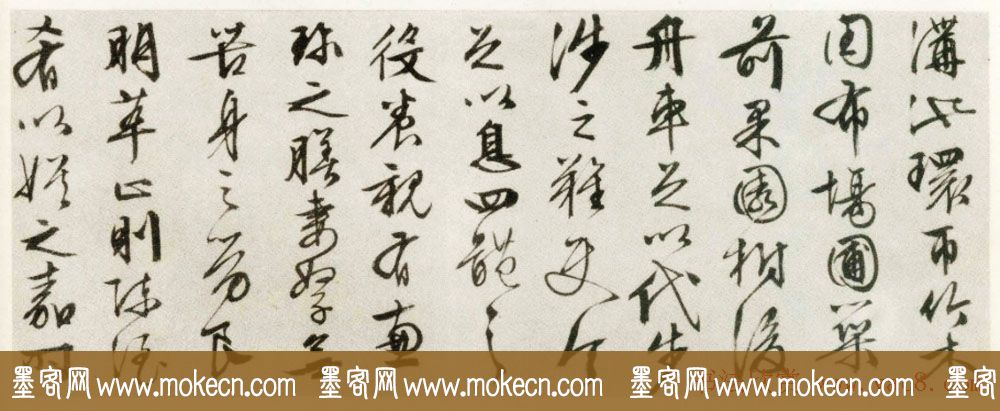 溝池環帀竹木
周布場圃築
前果園樹後
舟車足以代步
涉之難使令
足以息四體之
役養親有兼
珍之膳妻孥無
苦身之勞良
朋萃止則陳酒
肴以娛之嘉時
墨客网 www.mokecn.com 墨客网 www.mokecn.com 墨客网 www.mokecn.com 墨客网